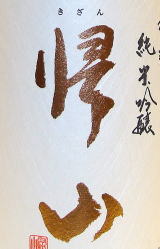 純米吟醸
きざん
帰山